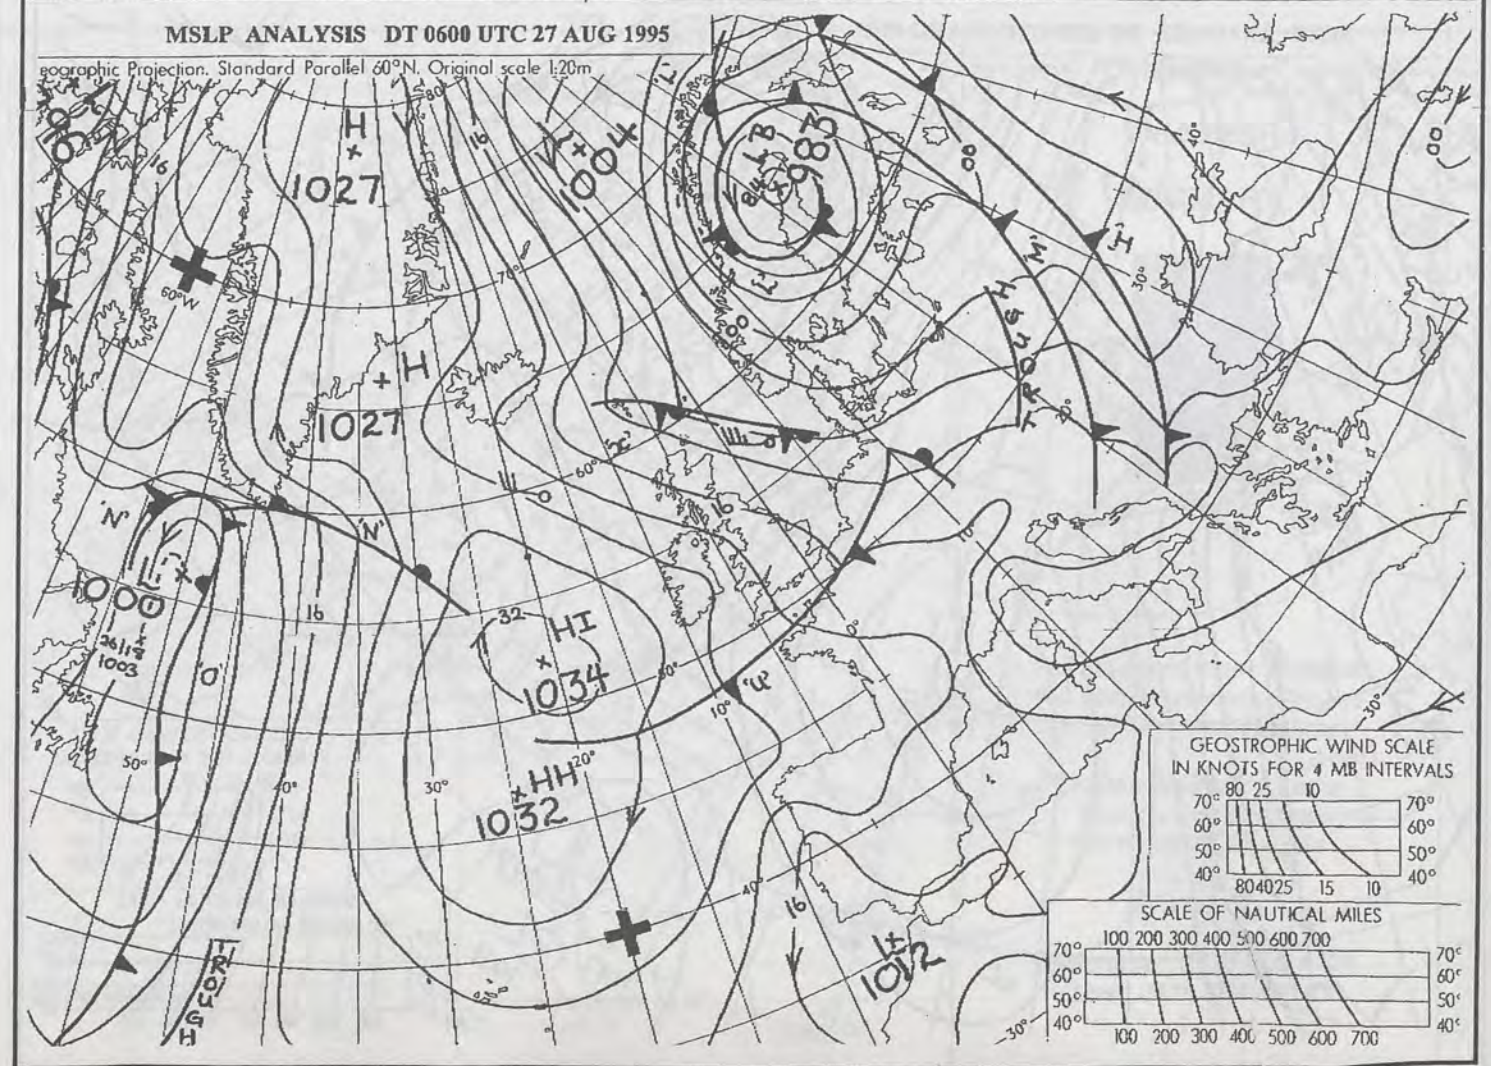 MSLP ANALYSIS DT 0600 UTC 27 AUG 1995
eographic Projection. Standard Parallel 60°N. Original scale 1:20m
80°
H
1027
16
16
1004
'L'
983
00
00
40°
H
'M'
30°
60°W
70°
H
1027
TROUGH
20°
60°
'N'
'N'
16
10°
1000
1003
'O'
16
32
HI
1034
50°
'U'
10°
0°
50°
40°
30°
20°
HH
1032
40°
16
1012
TROUGH
30°
30°
GEOSTROPHIC WIND SCALE
IN KNOTS FOR 4 MB INTERVALS
80 25 10
70° 70°
60° 60°
50° 50°
40° 40°
80 40 25 15 10
SCALE OF NAUTICAL MILES
100 200 300 400 500 600 700
70° 70°
60° 60°
50° 50°
40° 40°
100 200 300 400 500 600 700